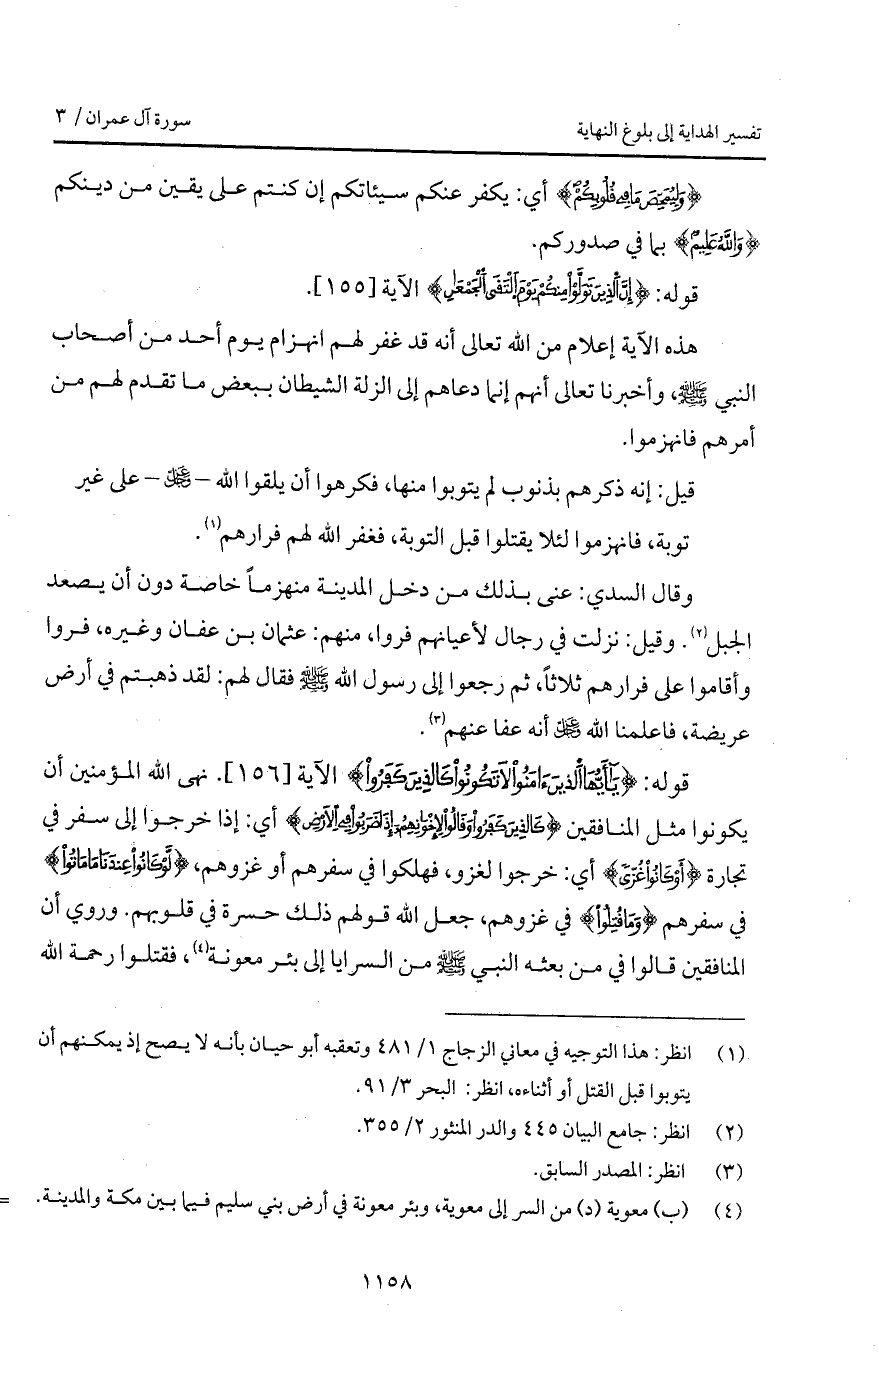 تفسير الهداية إلى بلوغ النهاية
سورة آل عمران / ٣
﴿وَلِيُمَحِّصَ مَا فِي قُلُوبِكُمْ﴾ أي: يكفر عنكم سيئاتكم إن كنتم على يقين من دينكم
﴿وَاللَّهُ عَلِيمٌ﴾ بما في صدوركم.
قوله: ﴿إِنَّ الَّذِينَ تَوَلَّوْا مِنكُمْ يَوْمَ الْتَقَى الْجَمْعَانِ﴾ الآية [١٥٥].
هذه الآية إعلام من الله تعالى أنه قد غفر لهم انهزام يوم أحد من أصحاب
النبي ﷺ، وأخبرنا تعالى أنهم إنما دعاهم إلى الزلة الشيطان ببعض ما تقدم لهم من
أمرهم فانهزموا.
قيل: إنه ذكرهم بذنوب لم يتوبوا منها، فكرهوا أن يلقوا الله – ﷻ – على غير
توبة، فانهزموا لئلا يقتلوا قبل التوبة، فغفر الله لهم فرارهم(١).
وقال السدي: عنى بذلك من دخل المدينة منهزماً خاصة دون أن يصعد
الجبل(٢). وقيل: نزلت في رجال لأعيانهم فروا، منهم: عثمان بن عفان وغيره، فروا
وأقاموا على فرارهم ثلاثاً، ثم رجعوا إلى رسول الله ﷺ فقال لهم: لقد ذهبتم في أرض
عريضة، فاعلمنا الله ﷻ أنه عفا عنهم(٣).
قوله: ﴿يَا أَيُّهَا الَّذِينَ ءَامَنُوا لَا تَكُونُوا كَالَّذِينَ كَفَرُوا﴾ الآية [١٥٦]. نهى الله المؤمنين أن
يكونوا مثل المنافقين ﴿كَالَّذِينَ كَفَرُوا وَقَالُوا لِإِخْوَانِهِمْ إِذَا ضَرَبُوا فِي الْأَرْضِ﴾ أي: إذا خرجوا إلى سفر في
تجارة ﴿أَوْ كَانُوا غُزًّى﴾ أي: خرجوا لغزو، فهلكوا في سفرهم أو غزوهم، ﴿لَّوْ كَانُوا عِندَنَا مَا مَاتُوا﴾
في سفرهم ﴿وَمَا قُتِلُوا﴾ في غزوهم، جعل الله قولهم ذلك حسرة في قلوبهم. وروي أن
المنافقين قالوا في من بعثه النبي ﷺ من السرايا إلى بئر معونة(٤)، فقتلوا رحمة الله
(١) انظر: هذا التوجيه في معاني الزجاج ١/ ٤٨١ وتعقبه أبو حيان بأنه لا يصح إذ يمكنهم أن
يتوبوا قبل القتل أو أثناءه، انظر: البحر ٣/ ٩١.
(٢) انظر: جامع البيان ٤٤٥ والدر المنثور ٢/ ٣٥٥.
(٣) انظر: المصدر السابق.
(٤) (ب) معوية (د) من السر إلى معوية، وبئر معونة في أرض بني سليم فيما بين مكة والمدينة. =
١١٥٨